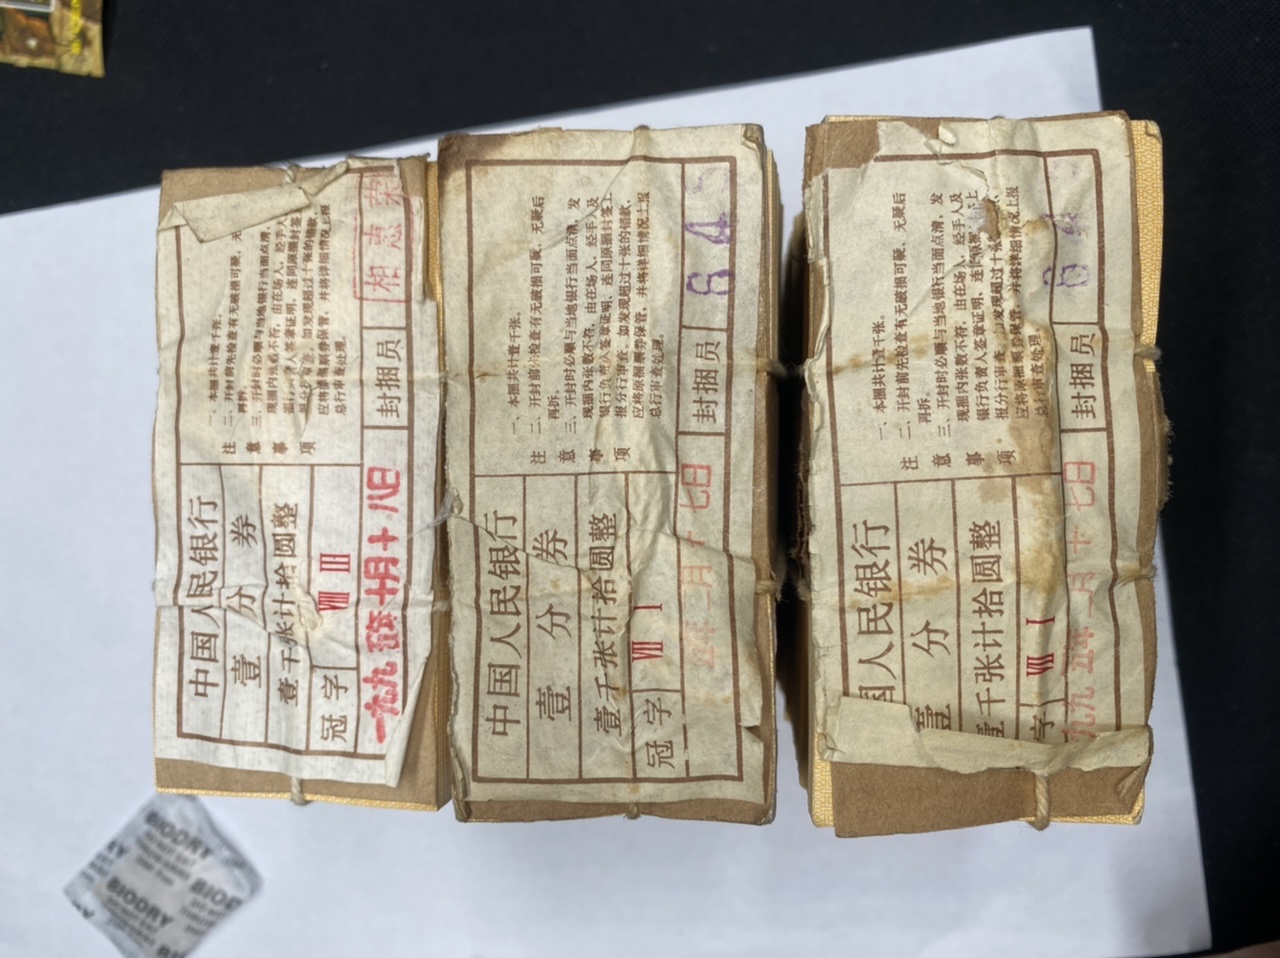 中国人民银行
壹分券
壹千张计拾圆整
冠字 VIII III
一九九五年十月十八日
注意事项
一、本捆共计壹千张。
二、开封前先检查有无破损可疑、无
再拆。
三、开封时必须与当地银行当面点清,
现捆内张数不符,由在场人、经手
人签章证明,连同原捆封签
报分行审查,如发现超过十张的错款,
应将原捆票券保管,并将详细情况上报
总行审查处理。
封捆员 相惠荣
中国人民银行
壹分券
壹千张计拾圆整
冠字 VIII I
五年 月十七日
注意事项
一、本捆共计壹千张。
二、开封前先检查有无破损可疑、无疑后
再拆。
三、开封时必须与当地银行当面点清,发
现捆内张数不符,由在场人、经手人及
银行负责人签章证明,连同原捆封签上
报分行审查,如发现超过十张的错款,
应将原捆票券保管,并将详细情况上报
总行审查处理。
封捆员 645
国人民银行
壹分券
壹千张计拾圆整
字 VIII I
九九五年 月十七日
注意事项
一、本捆共计壹千张。
二、开封前先检查有无破损可疑、无疑后
再拆。
三、开封时必须与当地银行当面点清,发
现捆内张数不符,由在场人、经手人及
银行负责人签章证明,连同原捆 上
报分行审查,如发现超过十张的错款,
应将原捆票券保管,并将详细情况上报
总行审查处理。
封捆员 6
BIODRY
BIODRY